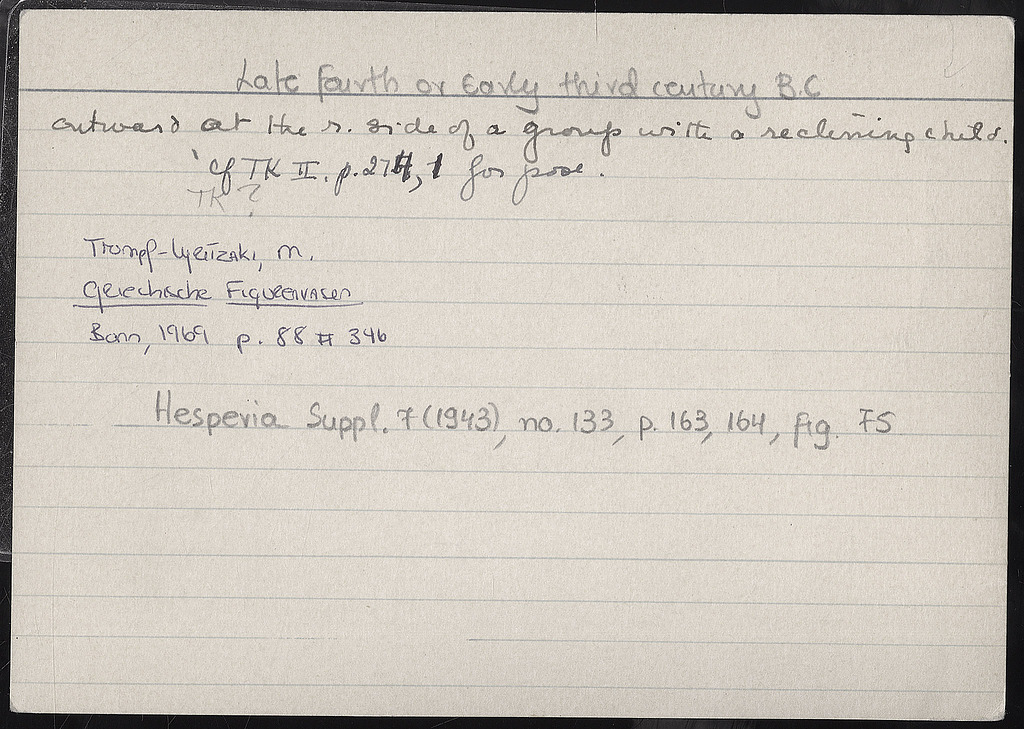 Late fourth or Early third century B.C
outward at the r. side of a group with a reclining child.
cf TK II. p. 274, 1 for pose.
TK ?
Trumpf-Lyritzaki, M.
Griechische Figurenvasen
Bonn, 1969 p. 88 # 346
Hesperia Suppl. 7 (1943), no. 133, p. 163, 164, fig. 75